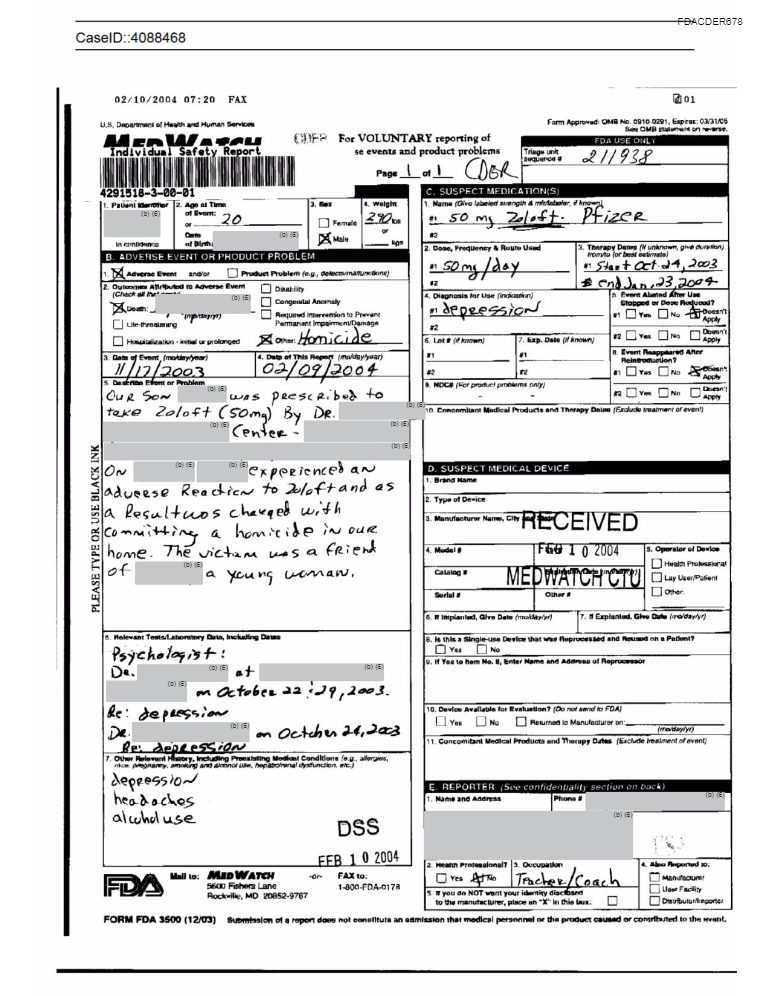 FDACDER678
CaseID::4088468
02/10/2004 07:20 FAX
01
U.S. Department of Health and Human Services
MEDWATCH
Individual Safety Report
4291518-3-00-01
For VOLUNTARY reporting of
se events and product problems
Page 1 of 1 CDER
Form Approved: OMB No. 0910-0291, Expires: 03/31/05
See OMB statement on reverse.
FDA USE ONLY
Triage unit
sequence #
211938
1. Patient Identifier
(b) (6)
In confidence
2. Age at Time
of Event:
20
or
Date
of Birth:
(b) (6)
3. Sex
Female
Male
4. Weight
lbs
or
kgs
B. ADVERSE EVENT OR PRODUCT PROBLEM
1. Adverse Event and/or Product Problem (e.g., defects/malfunctions)
2. Outcomes Attributed to Adverse Event
(Check all that
Death:
(b) (6)
(mo/day/yr)
Life-threatening
Hospitalization - initial or prolonged
Disability
Congenital Anomaly
Required Intervention to Prevent
Permanent Impairment/Damage
Other: Homicide
3. Date of Event (mo/day/year)
11/17/2003
4. Date of This Report (mo/day/year)
02/09/2004
5. Describe Event or Problem
Our Son (b) (6) was prescribed to
take Zoloft (50mg) By DR. (b) (6)
(b) (6) Center - (b) (6)
(b) (6)
On (b) (6) (b) (6) experienced an
adverse Reaction to Zoloft and as
a Result was charged with
committing a homicide in our
home. The victim was a friend
of (b) (6) a young woman.
PLEASE TYPE OR USE BLACK INK
6. Relevant Tests/Laboratory Data, Including Dates
Psychologist:
Dr. (b) (6) at (b) (6)
(b) (6) on October 22 : 29, 2003.
Re: depression
Dr. (b) (6) on October 24, 2003
Re: depression
7. Other Relevant History, Including Preexisting Medical Conditions (e.g., allergies,
race, pregnancy, smoking and alcohol use, hepatic/renal dysfunction, etc.)
depression
headaches
alcohol use
DSS
FEB 10 2004
C. SUSPECT MEDICATION(S)
1. Name (Give labeled strength & mfr/labeler, if known)
#1 50 mg Zoloft. Pfizer
#2
2. Dose, Frequency & Route Used
#1 50 mg/day
#2
3. Therapy Dates (If unknown, give duration)
from/to (or best estimate)
#1 Start Oct. 24, 2003
end Jan, 23, 2004
4. Diagnosis for Use (Indication)
#1 depression
#2
5. Event Abated After Use
Stopped or Dose Reduced?
#1 Yes No Doesn't Apply
#2 Yes No Doesn't Apply
6. Lot # (if known)
#1
#2
7. Exp. Date (if known)
#1
#2
8. Event Reappeared After
Reintroduction?
#1 Yes No Doesn't Apply
#2 Yes No Doesn't Apply
9. NDC# (For product problems only)
- -
10. Concomitant Medical Products and Therapy Dates (Exclude treatment of event)
D. SUSPECT MEDICAL DEVICE
1. Brand Name
2. Type of Device
3. Manufacturer Name, City
RECEIVED
FEB 10 2004
MEDWATCH CTU
4. Model #
Catalog #
Serial #
Other #
5. Operator of Device
Health Professional
Lay User/Patient
Other:
6. If Implanted, Give Date (mo/day/yr)
7. If Explanted, Give Date (mo/day/yr)
8. Is this a Single-use Device that was Reprocessed and Reused on a Patient?
Yes No
9. If Yes to Item No. 8, Enter Name and Address of Reprocessor
10. Device Available for Evaluation? (Do not send to FDA)
Yes No Returned to Manufacturer on:
(mo/day/yr)
11. Concomitant Medical Products and Therapy Dates (Exclude treatment of event)
E. REPORTER (See confidentiality section on back)
1. Name and Address
Phone #
(b) (6)
(b) (6)
2. Health Professional?
Yes No
3. Occupation
Teacher/Coach
4. Also Reported to:
Manufacturer
User Facility
Distributor/Importer
5. If you do NOT want your identity disclosed
to the manufacturer, place an "X" in this box:
FDA
Mail to: MEDWATCH
5600 Fishers Lane
Rockville, MD 20852-9787
-or- FAX to:
1-800-FDA-0178
FORM FDA 3500 (12/03) Submission of a report does not constitute an admission that medical personnel or the product caused or contributed to the event.